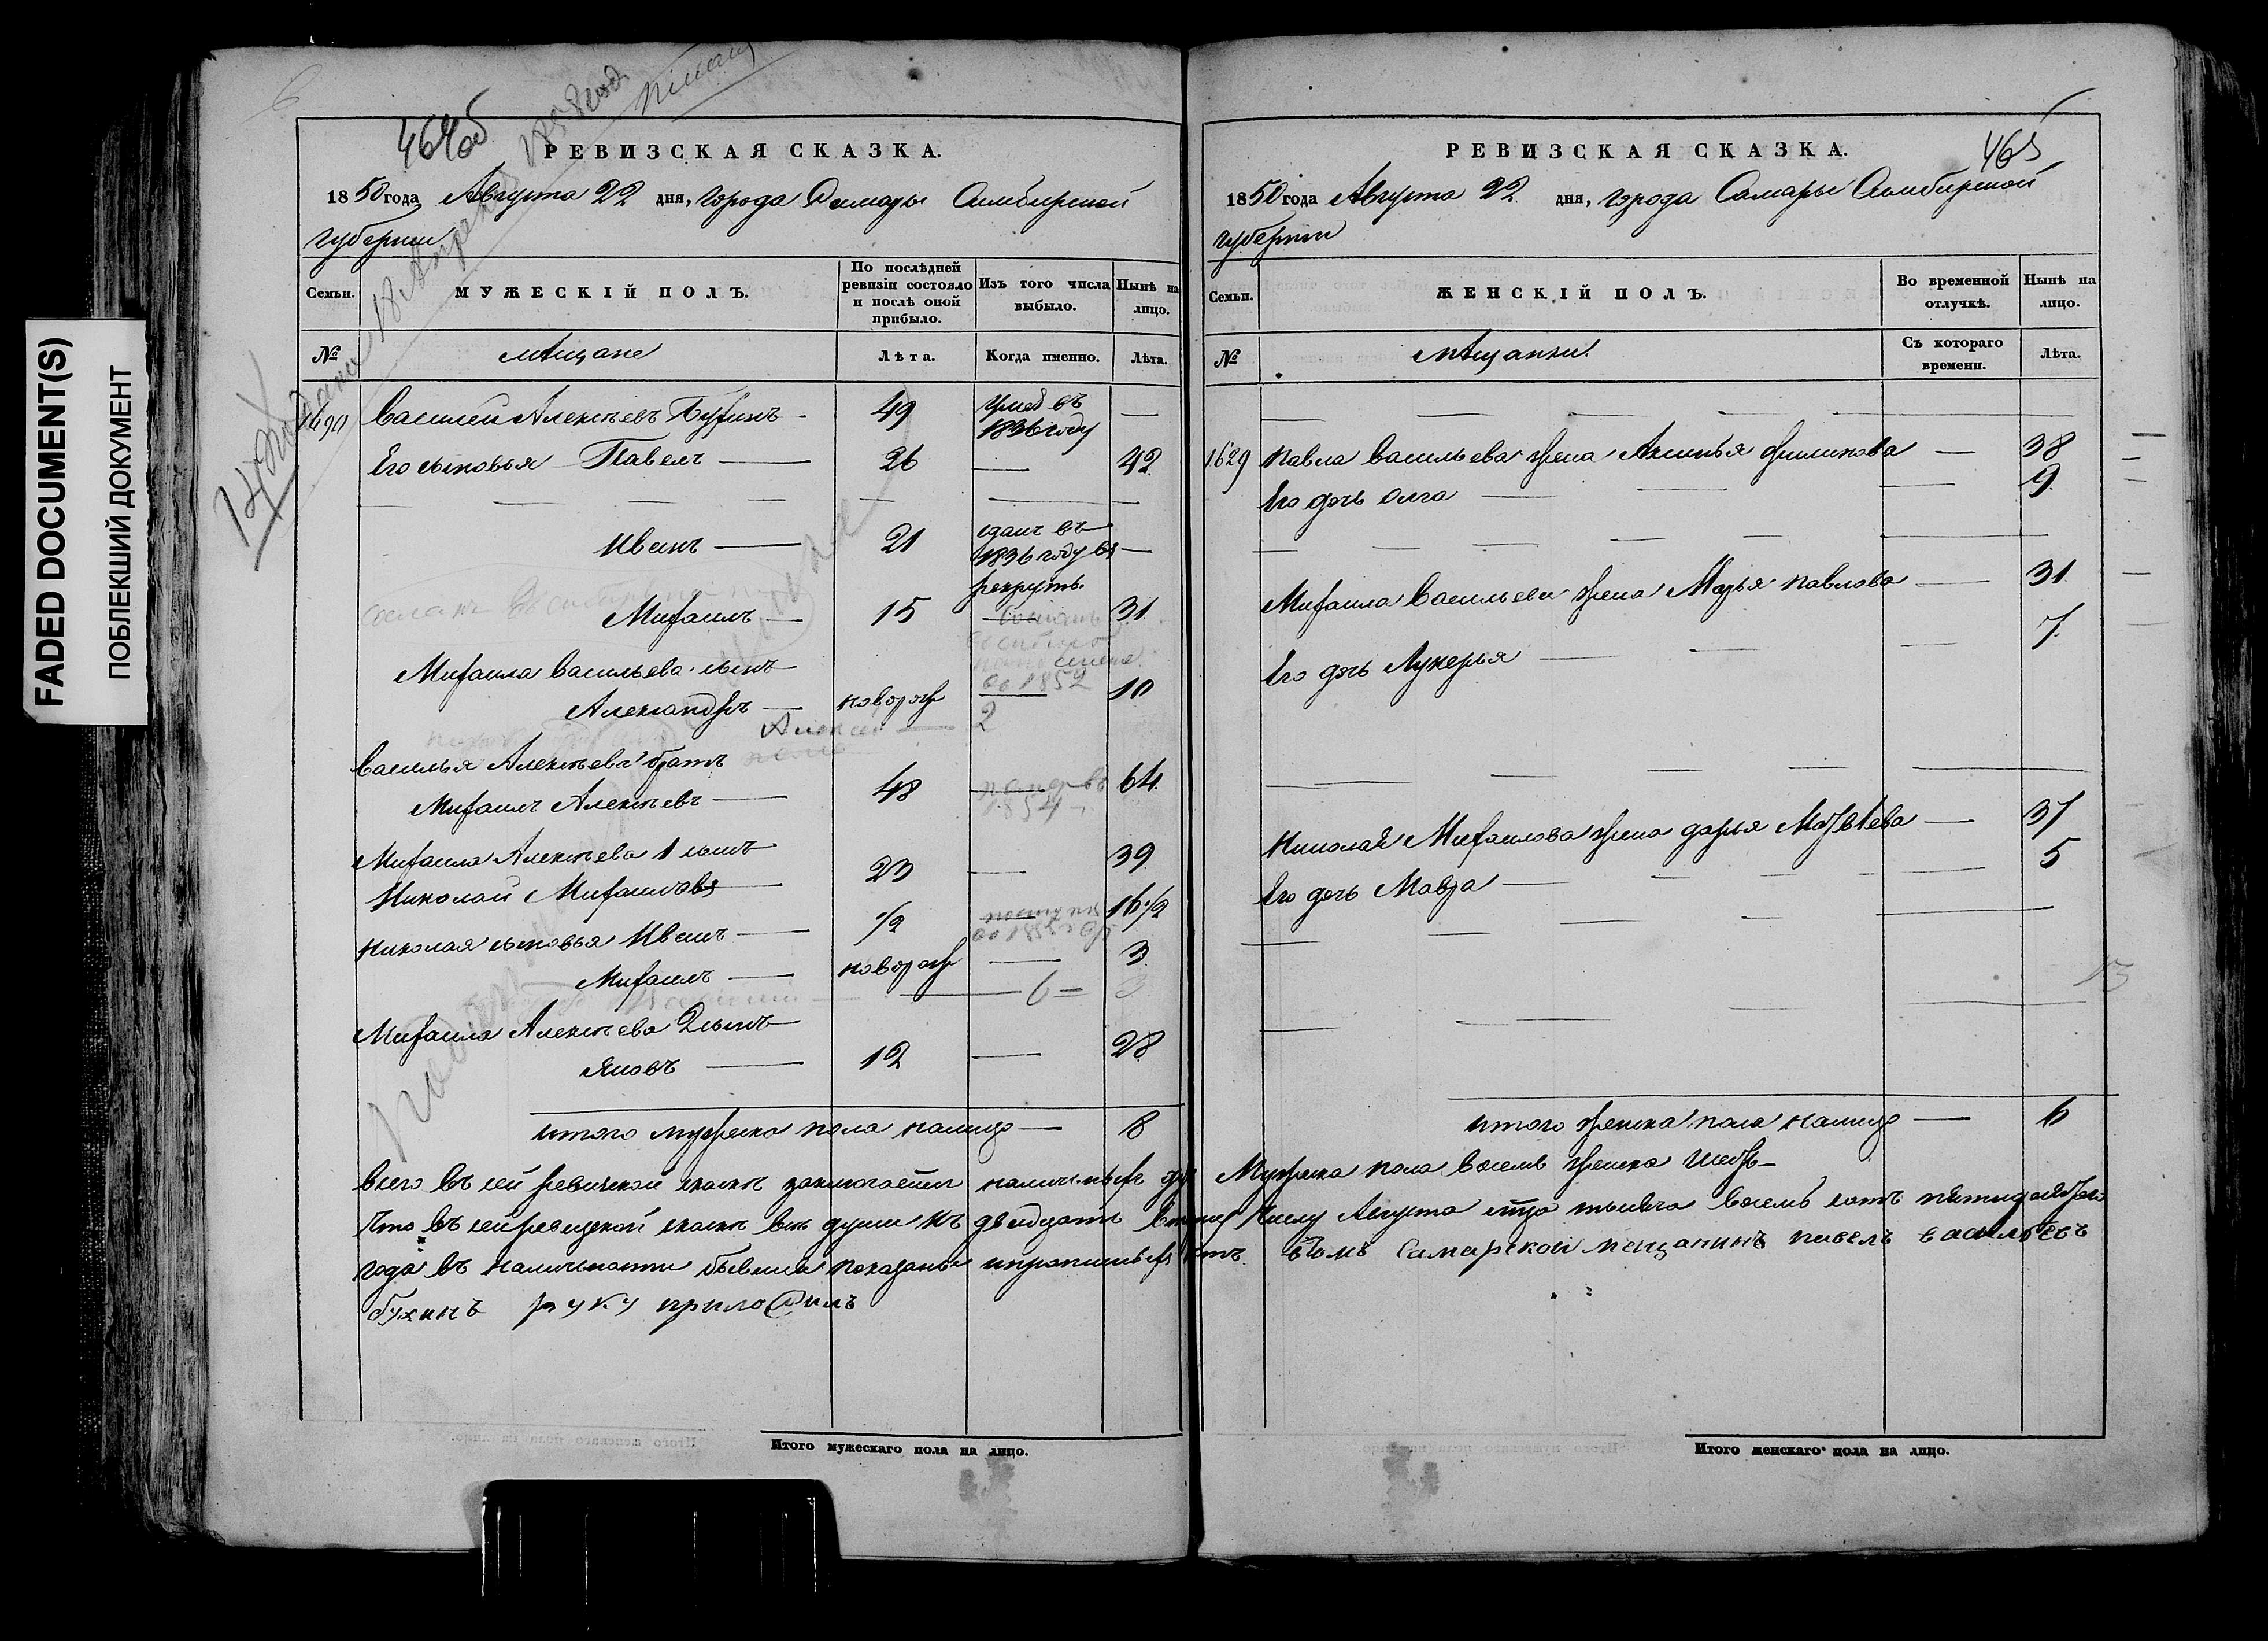 FADED DOCUMENT(S)
ПОБЛЕКШИЙ ДОКУМЕНТ
464об
РЕВИЗСКАЯ СКАЗКА.
1850 года Августа 22 дня, города Самары Симбирской
губернии
Семьи.
МУЖЕСКІЙ ПОЛЪ.
По послѣдней ревизіи состояло и послѣ оной прибыло.
Изъ того числа выбыло.
Нынѣ на лицо.
№
Мѣщане
Лѣта.
Когда именно.
Лѣта.
Василий Алексѣевъ Бухинъ — 49 умеръ въ 1836 году —
Его сыновья Павелъ — 26 — 42
Иванъ — 21 сданъ въ 1836 году въ рекруты —
Михаилъ — 15 — 31
Михаила Васильева сынъ
Александръ — новорож 10
Алексей — 2
Василья Алексѣева братъ
Михаилъ Алексѣевъ — 48 — 64
1854
Михаила Алексѣева 1 сынъ
Николай Михаиловъ — 23 — 39
Николая сыновья Иванъ — 1/2 — 16 1/2
Михаилъ — новорож — 3
6 =
Михаила Алексѣева 2 сынъ
Яковъ — 12 — 28
итого мужеска пола налицо — 8
РЕВИЗСКАЯ СКАЗКА.
465
1850 года Августа 22 дня, города Самары Симбирской
губернии
Семьи.
ЖЕНСКІЙ ПОЛЪ.
Во временной отлучкѣ.
Нынѣ на лицо.
№
Мѣщанки.
Съ котораго времени.
Лѣта.
1629 Павла Васильева жена Аксинья Филипова — 38
Его дочь Олга — 9
Михаила Васильева жена Марья Павлова — 31
Его дочь Лукерья — 7
Николая Михаилова жена Дарья Матвѣева — 37
Его дочь Мавра — 5
итого женска пола налицо — 6
Всего въ сей ревизской сказкѣ заключается наличныхъ душ Мужеска пола восемь женска шесть
Что въ сей ревизской сказкѣ всѣ души къ двадцать второму числу Августа мца тысяча восемь сотъ пятидесятаго
года въ наличности бывшия показаны и прописныхъ нѣтъ. въ томъ Самарской мещанинъ павелъ васильевъ
бухинъ руку приложилъ
Итого мужескаго пола на лицо.
Итого женскаго пола на лицо.